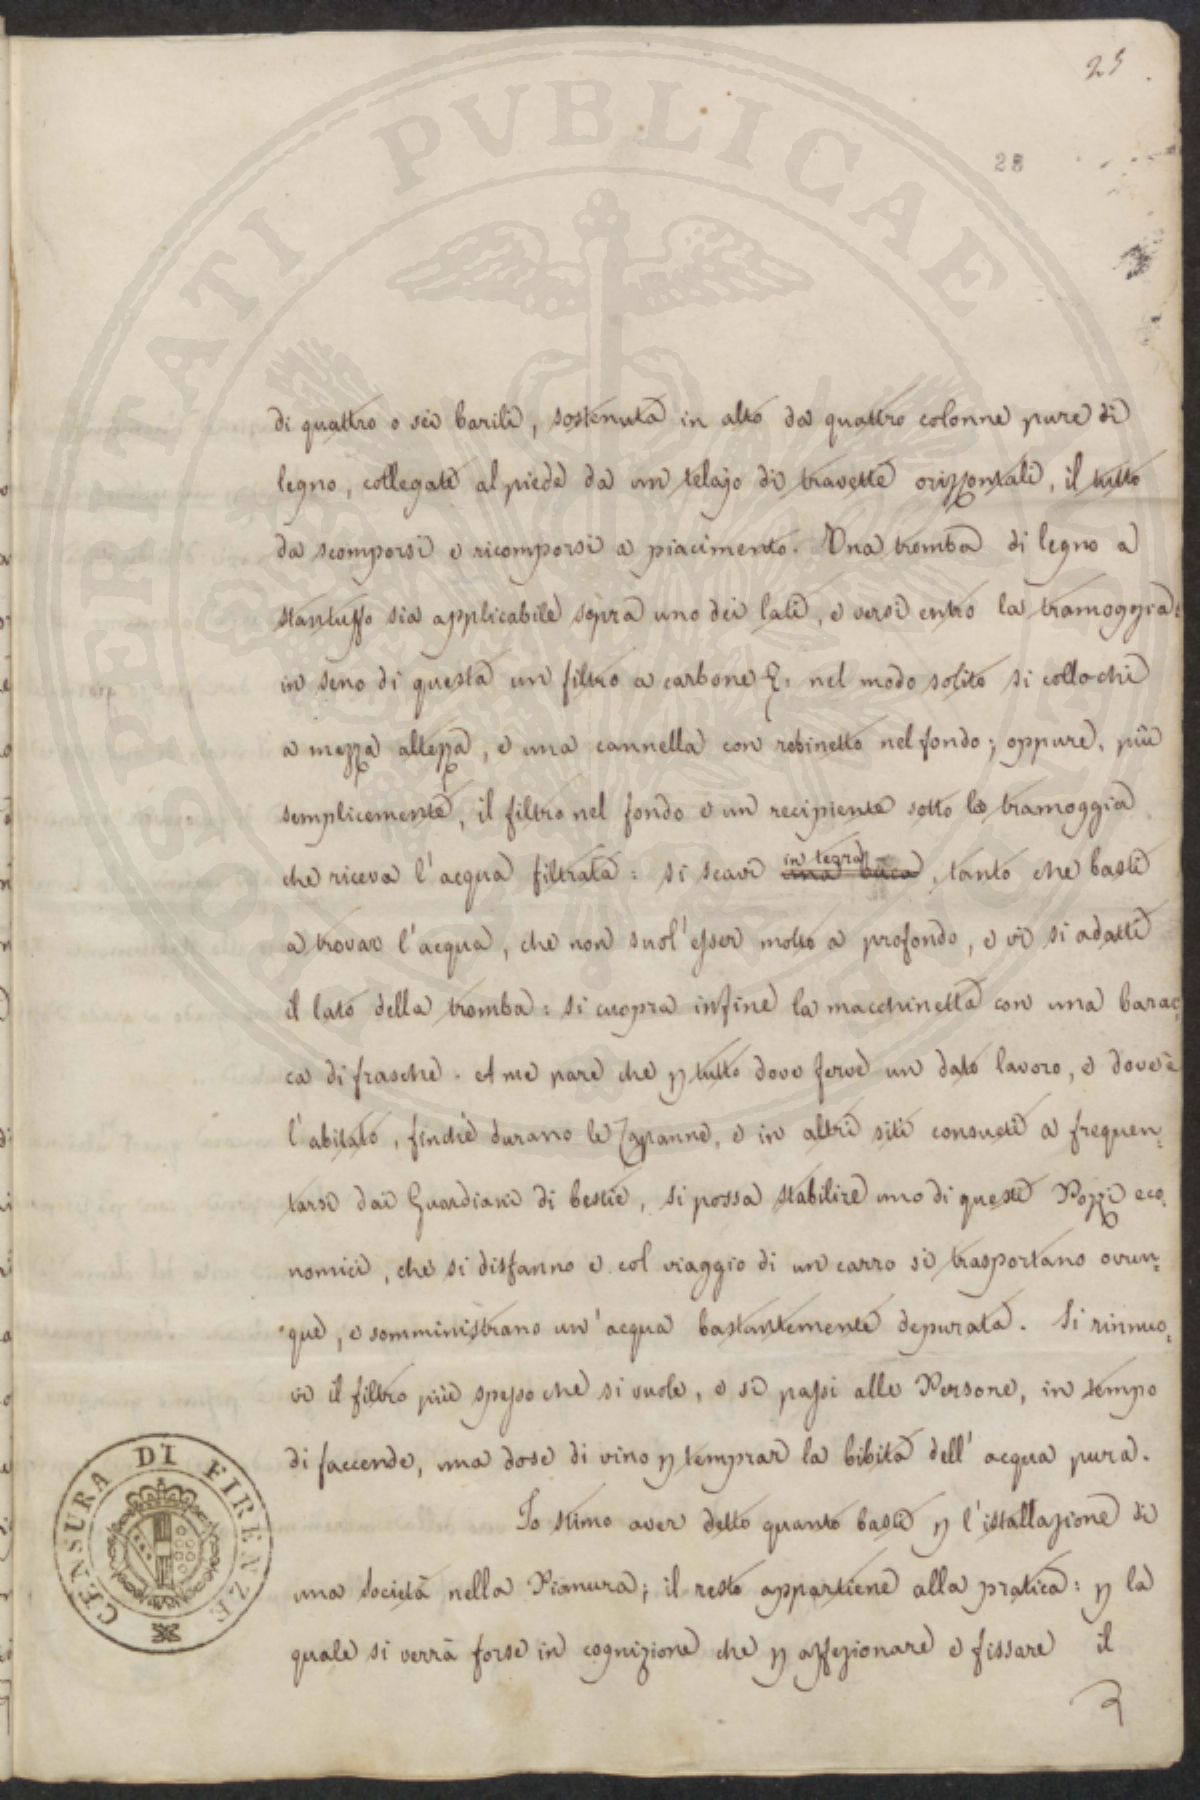 25
28
di quattro o sei barili, sostenuta in alto da quattro colonne pure di
legno, collegate al piede da un telajo di travette orizzontali, il tutto
da scomporsi e ricomporsi a piacimento. Una tromba di legno a
stantuffo sia applicabile sopra uno dei lati, e versi entro la tramoggia:
in seno di questa un filtro a carbone &: nel modo solito si collochi
a mezza altezza, e una cannella con robinetto nel fondo; oppure, più
semplicemente, il filtro nel fondo e un recipiente sotto la tramoggia
che riceva l'acqua filtrata: si scavi in terra una buca, tanto che basti
a trovar l'acqua, che non suol'esser molto a profondo, e vi si adatti
il lato della tromba: si cuopra infine la macchinetta con una barac:
ca di frasche. A me pare che p tutto dove ferve un dato lavoro, e dove è
l'abitato, finchè durano le Capanne, e in altri siti consueti a frequen:
tarsi dai Guardiani di bestie, si possa stabilire uno di questi Pozzi eco:
nomici, che si disfanno e col viaggio di un carro si trasportano ovun:
que, e somministrano un'acqua bastantemente depurata. Si rinnuo:
vi il filtro più spesso che si vuole, e si passi alle Persone, in tempo
di faccende, una dose di vino p temprar la bibita dell'acqua pura.
Io stimo aver detto quanto basti p l'istallazione di
una Società nella Pianura; il resto appartiene alla pratica: p la
quale si verrà forse in cognizione che p affezionare e fissare il
CENSURA DI FIRENZE
PROSPERITATI PVBLICAE